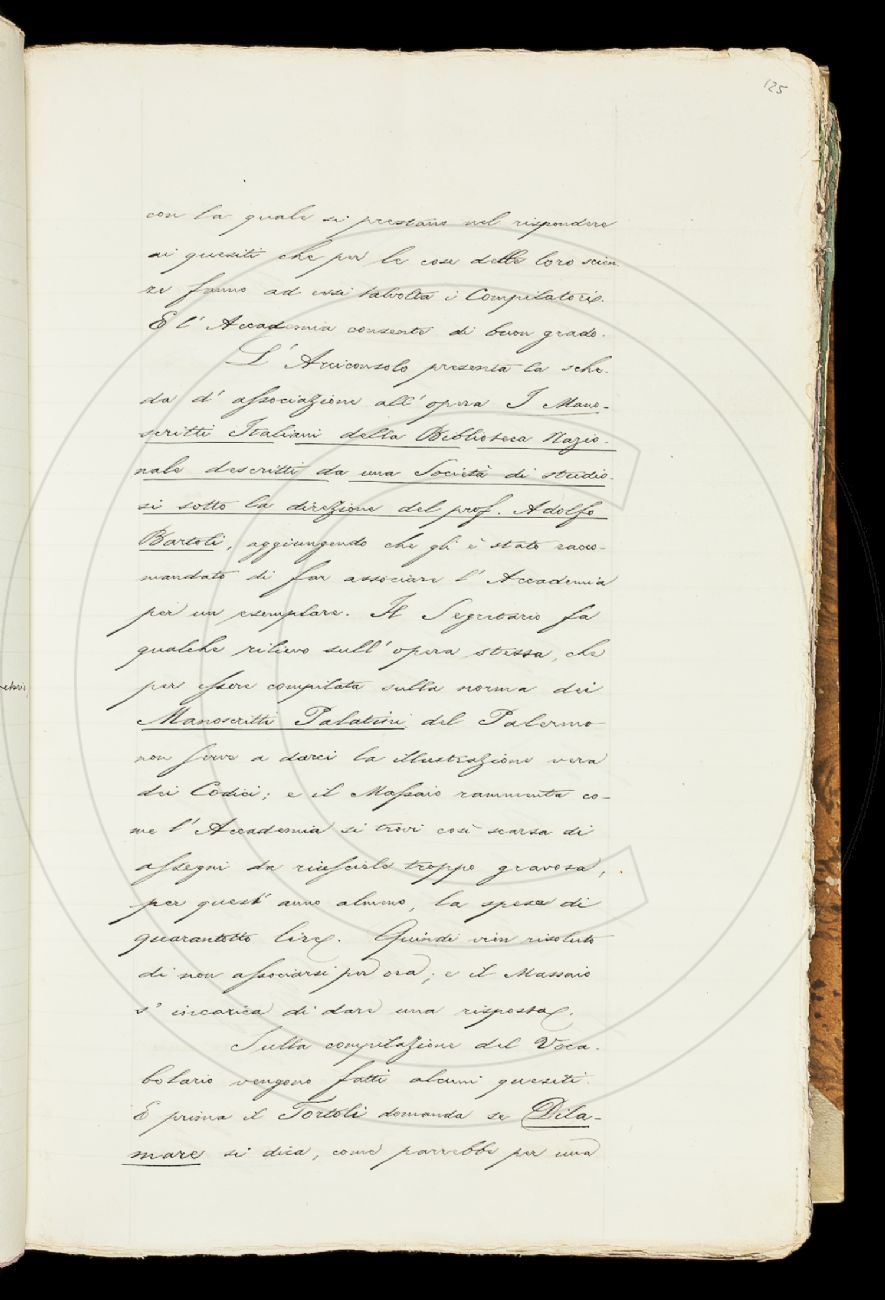 125
con la quale si prestano nel rispondere
ai quesiti che per le cose delle loro scien
ze fanno ad essi talvolta i Compilatori.
E l'Accademia consente di buon grado.
L'Arciconsolo presenta la sche-
da d'associazione all'opera I Mano-
scritti Italiani della Biblioteca Nazio-
nale descritti da una Società di studio-
si sotto la direzione del prof. Adolfo
Bartoli, aggiungendo che gli è stato racco-
mandato di far associare l'Accademia
per un esemplare. Il Segretario fa
qualche rilievo sull'opera stessa, che
per essere compilata sulla norma dei
Manoscritti Palatini del Palermo
non serve a darci la illustrazione vera
dei Codici; e il Massaio rammenta co-
me l'Accademia si trovi così scarsa di
assegni da riuscirle troppo gravosa,
per quest'anno almeno, la spesa di
quarantotto lire. Quindi vien risoluto
di non associarsi per ora; e il Massaio
s'incarica di dare una risposta.
Sulla compilazione del Voca-
bolario vengono fatti alcuni quesiti.
E prima il Tortoli domanda se Dila-
mare si dica, come parrebbe per una